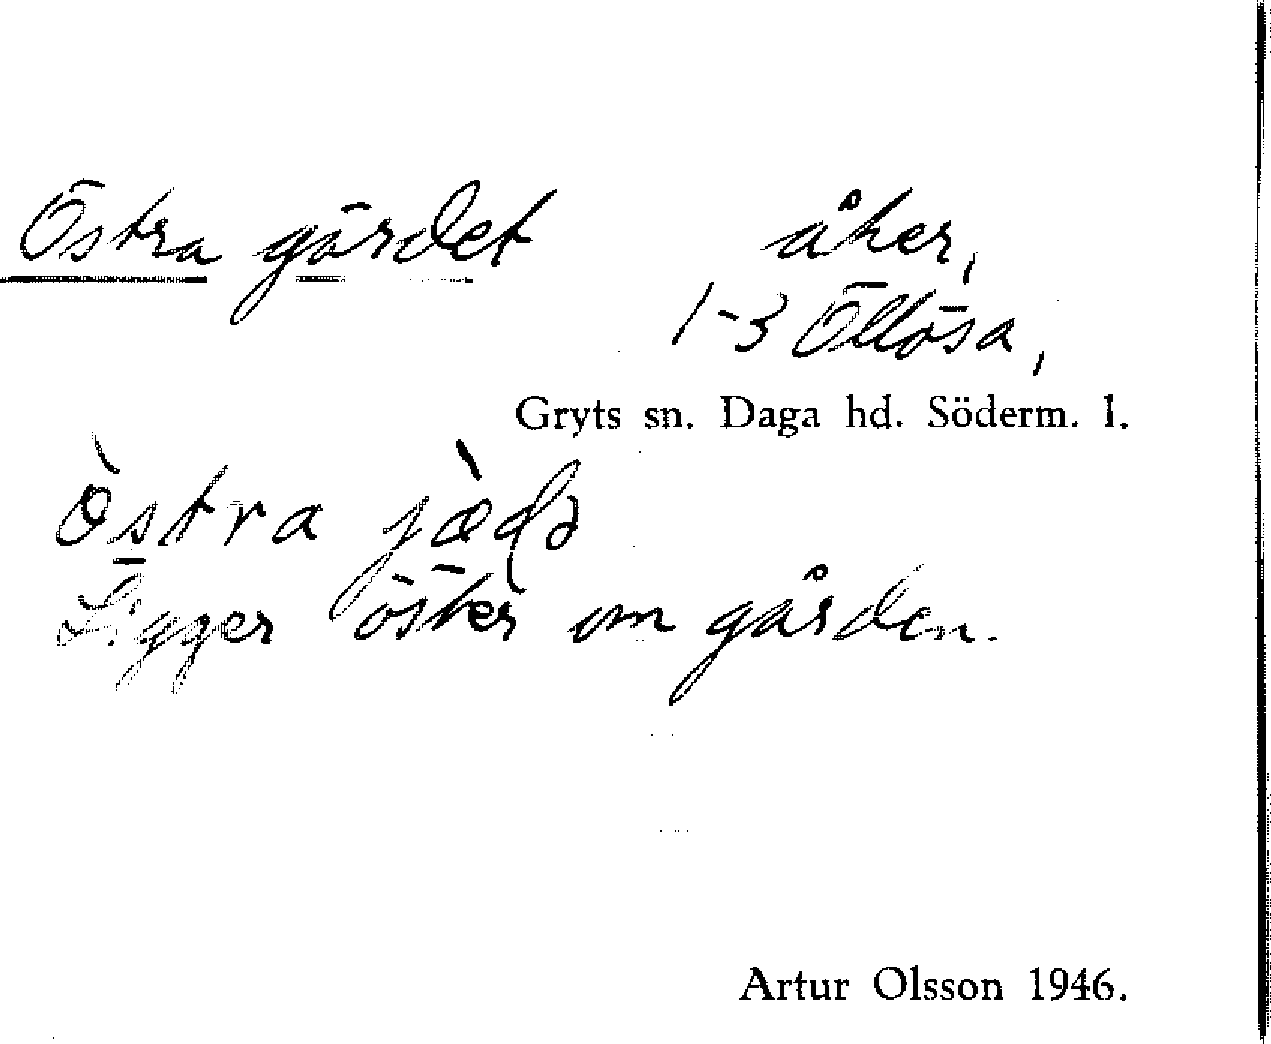 Östra gärdet åker,
1-3 Öllösa,
Gryts sn. Daga hd. Söderm. l.
Ligger öster om gården.
Artur Olsson 1946.